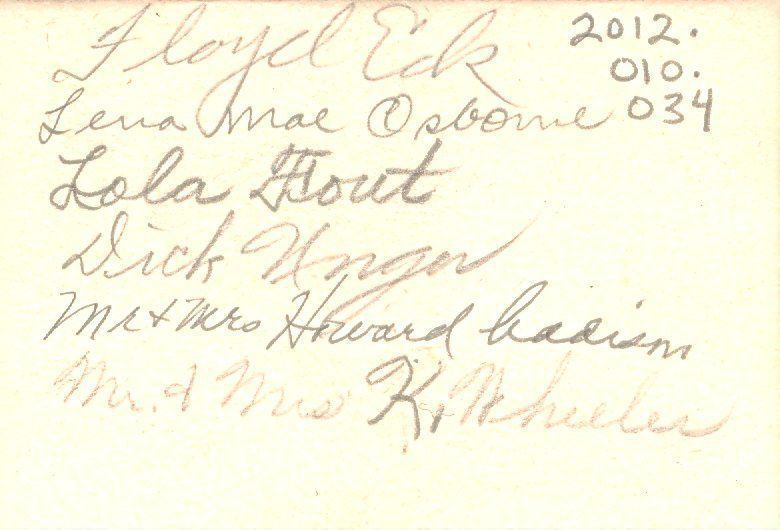 Floyd Eck
2012.
010.
034
Lena Mae Osborne
Lola Fout
Dick Unger
Mr & Mrs Howard
Mr. & Mrs K. Wheeler